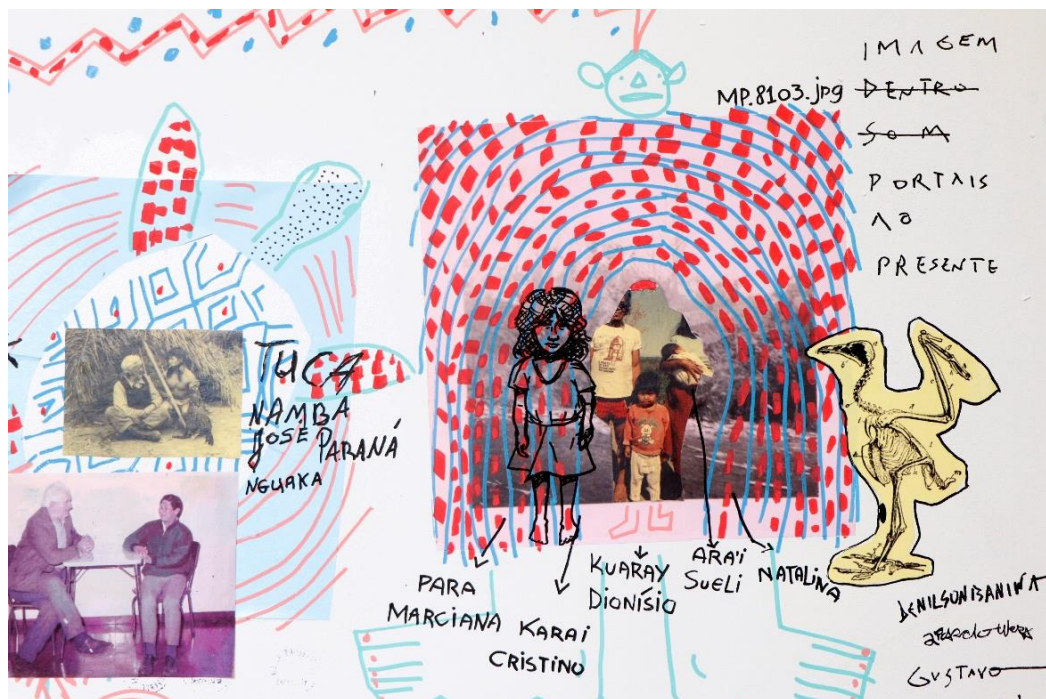 IMAGEM
DENTRO
SOM
PORTAIS
AO
PRESENTE
MP.8103.jpg
TUCA
NAMBA
JOSÉ PARANÁ
NGUAKA
PARA
MARCIANA
KARAI
CRISTINO
KUARAY
DIONÍSIO
ARA'I
SUELI
NATALINA
DENILSON BANIWA
GUSTAVO